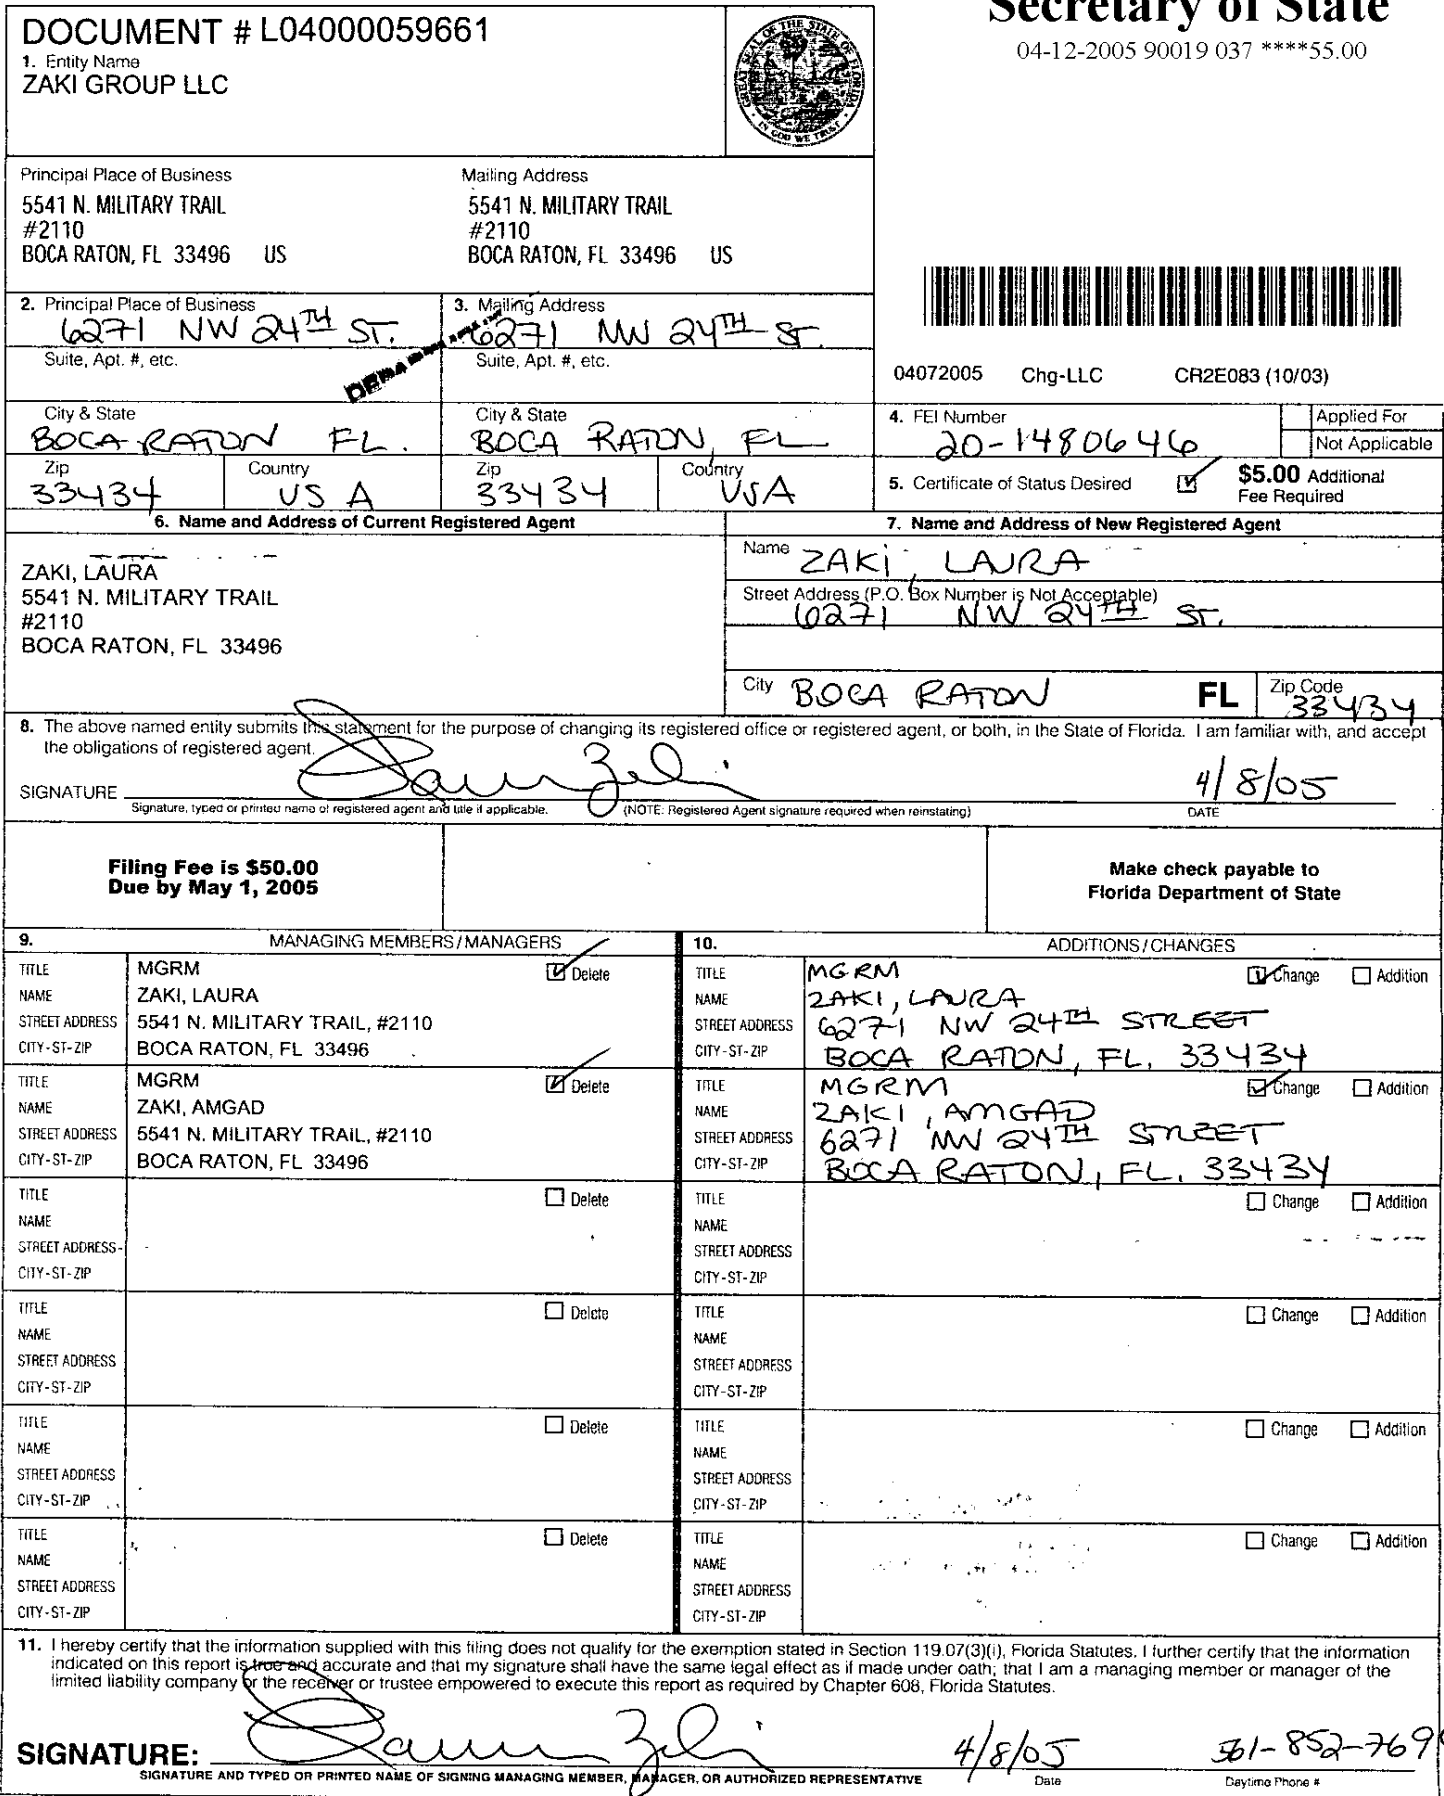 Secretary of State
04-12-2005 90019 037 ****55.00
DOCUMENT # L04000059661
1. Entity Name
ZAKI GROUP LLC
GREAT SEAL OF THE STATE OF FLORIDA
IN GOD WE TRUST
Principal Place of Business
5541 N. MILITARY TRAIL
#2110
BOCA RATON, FL 33496 US
Mailing Address
5541 N. MILITARY TRAIL
#2110
BOCA RATON, FL 33496 US
2. Principal Place of Business
6271 NW 24TH ST.
Suite, Apt. #, etc.
City & State
BOCA RATON FL.
Zip
33434
Country
USA
3. Mailing Address
6271 NW 24TH ST.
Suite, Apt. #, etc.
City & State
BOCA RATON, FL
Zip
33434
Country
USA
04072005 Chg-LLC CR2E083 (10/03)
4. FEI Number
20-1480646
Applied For
Not Applicable
5. Certificate of Status Desired
$5.00 Additional
Fee Required
6. Name and Address of Current Registered Agent
ZAKI, LAURA
5541 N. MILITARY TRAIL
#2110
BOCA RATON, FL 33496
7. Name and Address of New Registered Agent
Name ZAKI, LAURA
Street Address (P.O. Box Number is Not Acceptable)
6271 NW 24TH ST.
City BOCA RATON FL Zip Code 33434
8. The above named entity submits this statement for the purpose of changing its registered office or registered agent, or both, in the State of Florida. I am familiar with, and accept
the obligations of registered agent.
SIGNATURE 4/8/05
Signature, typed or printed name of registered agent and title if applicable. (NOTE: Registered Agent signature required when reinstating) DATE
Filing Fee is $50.00
Due by May 1, 2005
Make check payable to
Florida Department of State
9. MANAGING MEMBERS/MANAGERS
TITLE MGRM Delete
NAME ZAKI, LAURA
STREET ADDRESS 5541 N. MILITARY TRAIL, #2110
CITY-ST-ZIP BOCA RATON, FL 33496
TITLE MGRM Delete
NAME ZAKI, AMGAD
STREET ADDRESS 5541 N. MILITARY TRAIL, #2110
CITY-ST-ZIP BOCA RATON, FL 33496
TITLE Delete
NAME
STREET ADDRESS
CITY-ST-ZIP
TITLE Delete
NAME
STREET ADDRESS
CITY-ST-ZIP
TITLE Delete
NAME
STREET ADDRESS
CITY-ST-ZIP
TITLE Delete
NAME
STREET ADDRESS
CITY-ST-ZIP
10. ADDITIONS/CHANGES
TITLE MGRM Change Addition
NAME ZAKI, LAURA
STREET ADDRESS 6271 NW 24TH STREET
CITY-ST-ZIP BOCA RATON, FL. 33434
TITLE MGRM Change Addition
NAME ZAKI, AMGAD
STREET ADDRESS 6271 NW 24TH STREET
CITY-ST-ZIP BOCA RATON, FL. 33434
TITLE Change Addition
NAME
STREET ADDRESS
CITY-ST-ZIP
TITLE Change Addition
NAME
STREET ADDRESS
CITY-ST-ZIP
TITLE Change Addition
NAME
STREET ADDRESS
CITY-ST-ZIP
TITLE Change Addition
NAME
STREET ADDRESS
CITY-ST-ZIP
11. I hereby certify that the information supplied with this filing does not qualify for the exemption stated in Section 119.07(3)(i), Florida Statutes. I further certify that the information
indicated on this report is true and accurate and that my signature shall have the same legal effect as if made under oath; that I am a managing member or manager of the
limited liability company or the receiver or trustee empowered to execute this report as required by Chapter 608, Florida Statutes.
SIGNATURE: 4/8/05 561-852-769
SIGNATURE AND TYPED OR PRINTED NAME OF SIGNING MANAGING MEMBER, MANAGER, OR AUTHORIZED REPRESENTATIVE Date Daytime Phone #